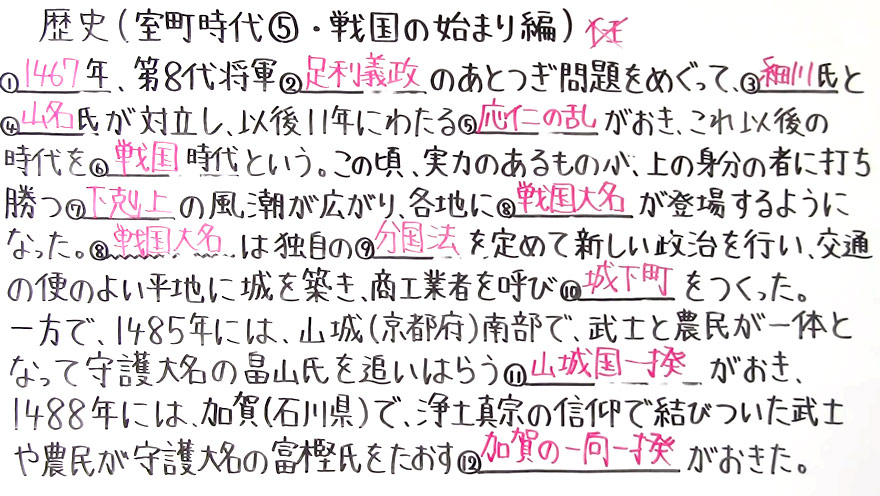 歴史(室町時代⑤・戦国の始まり編)
①1467年、第8代将軍②足利義政のあとつぎ問題をめぐって、③細川氏と
④山名氏が対立し、以後11年にわたる⑤応仁の乱がおき、これ以後の
時代を⑥戦国時代という。この頃、実力のあるものが、上の身分の者に打ち
勝つ⑦下剋上の風潮が広がり、各地に⑧戦国大名が登場するように
なった。⑧戦国大名は独自の⑨分国法を定めて新しい政治を行い、交通
の便のよい平地に城を築き、商工業者を呼び⑩城下町をつくった。
一方で、1485年には、山城(京都府)南部で、武士と農民が一体と
なって守護大名の畠山氏を追いはらう⑪山城国一揆がおき、
1488年には、加賀(石川県)で、浄土真宗の信仰で結びついた武士
や農民が守護大名の富樫氏をたおす⑫加賀の一向一揆がおきた。